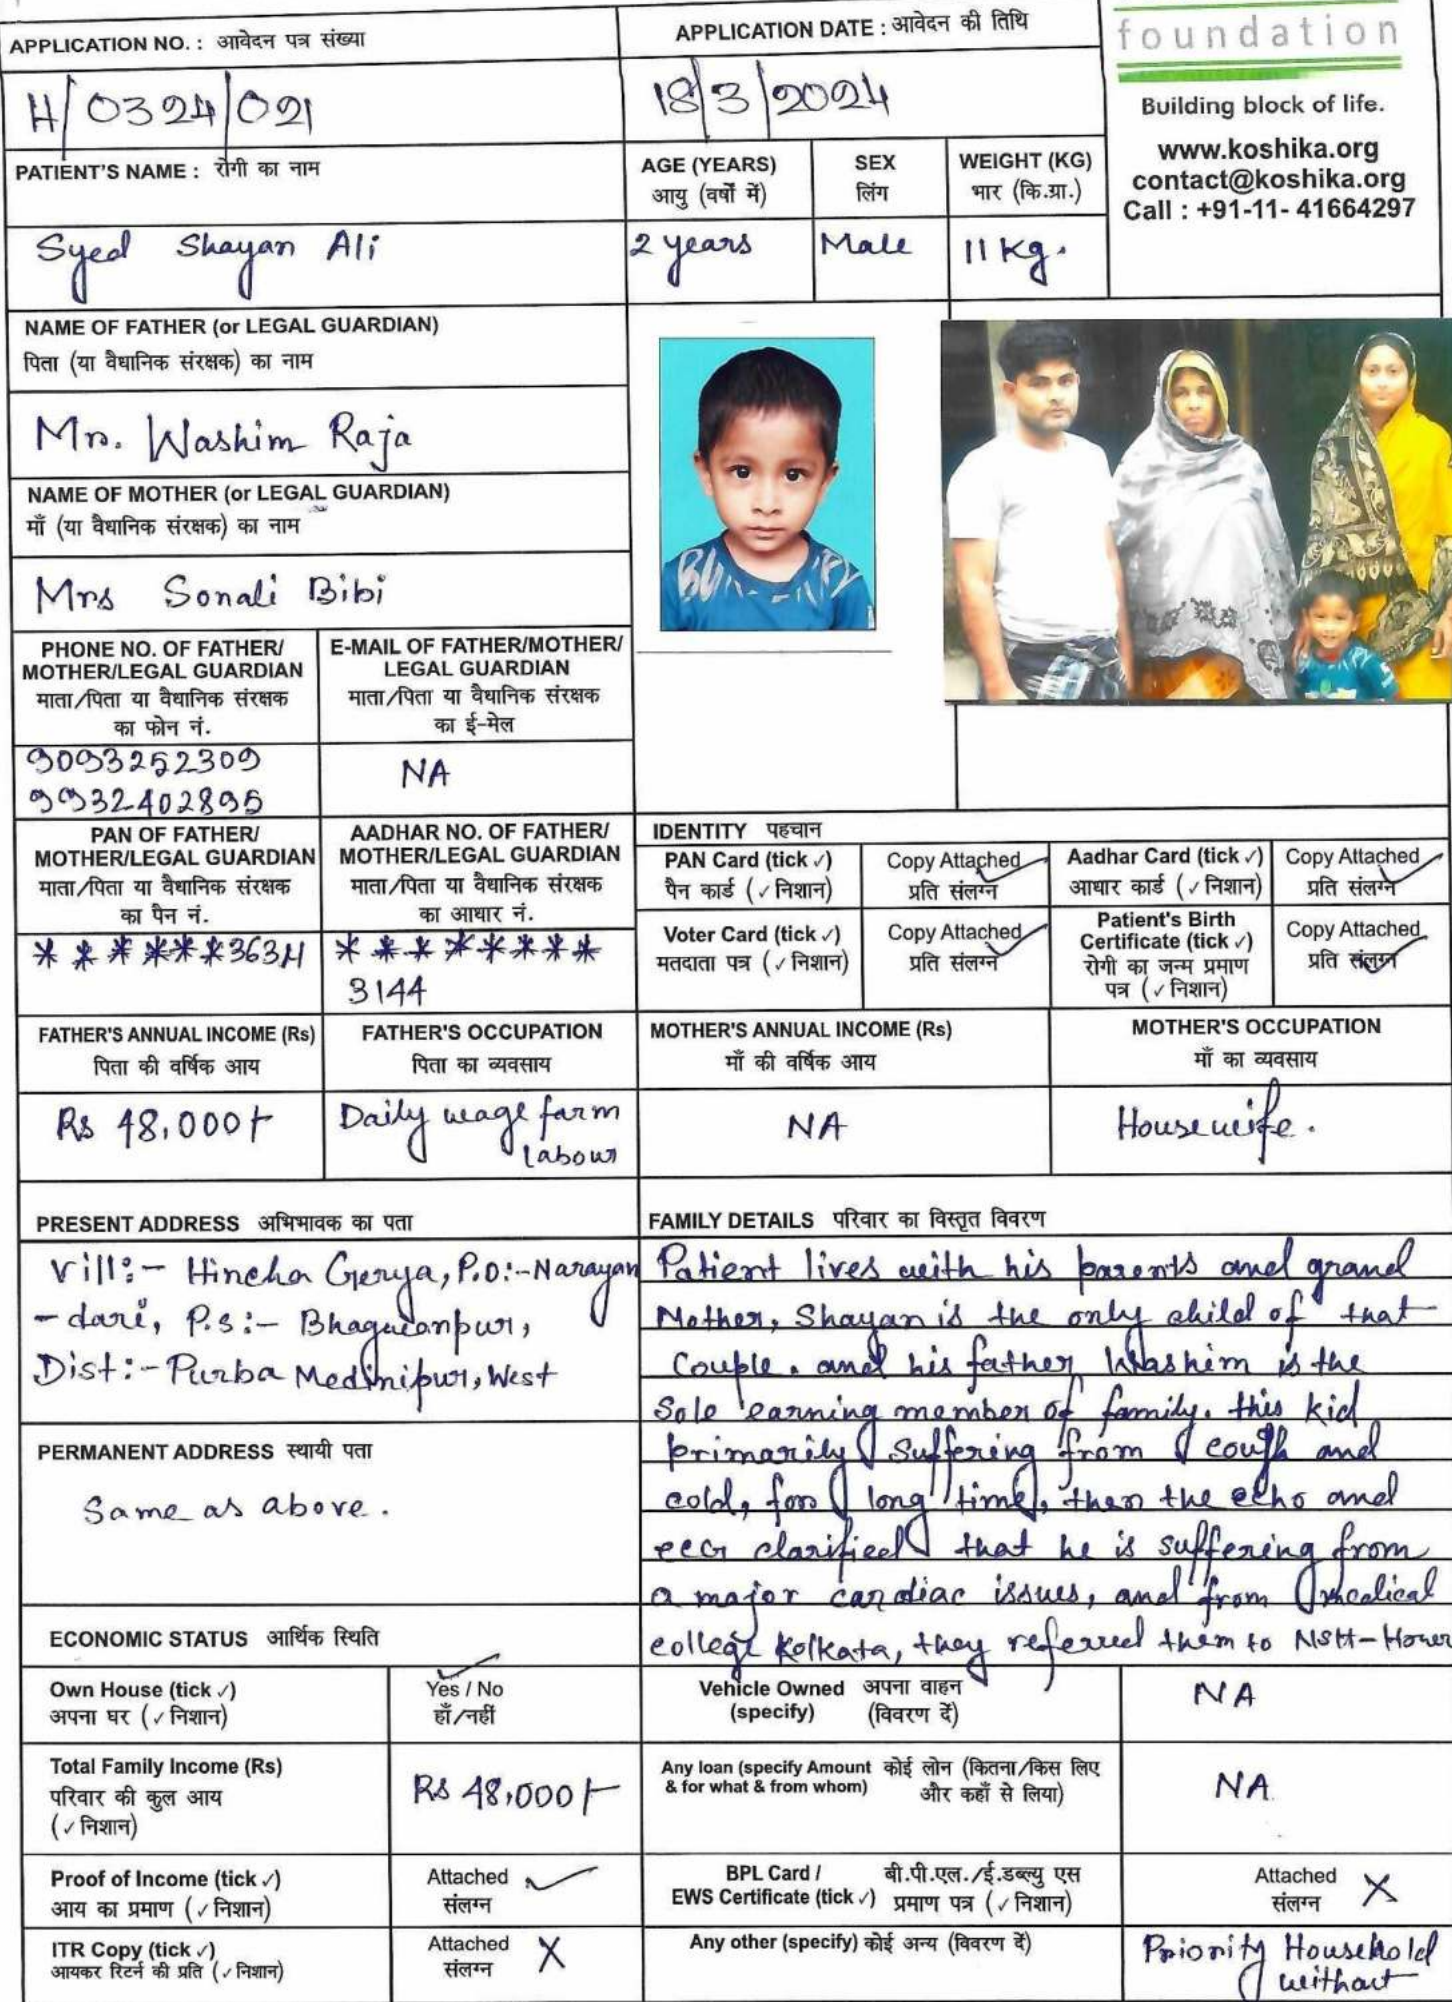 foundation
Building block of life.
www.koshika.org
contact@koshika.org
Call : +91-11- 41664297
APPLICATION NO. : आवेदन पत्र संख्या
APPLICATION DATE : आवेदन की तिथि
H/0324/021
18/3/2024
PATIENT'S NAME : रोगी का नाम
AGE (YEARS)
आयु (वर्षों में)
SEX
लिंग
WEIGHT (KG)
भार (कि.ग्रा.)
Syed Shayan Ali
2 years
Male
11 Kg.
NAME OF FATHER (or LEGAL GUARDIAN)
पिता (या वैधानिक संरक्षक) का नाम
Mr. Washim Raja
NAME OF MOTHER (or LEGAL GUARDIAN)
माँ (या वैधानिक संरक्षक) का नाम
Mrs Sonali Bibi
PHONE NO. OF FATHER/
MOTHER/LEGAL GUARDIAN
माता/पिता या वैधानिक संरक्षक
का फोन नं.
E-MAIL OF FATHER/MOTHER/
LEGAL GUARDIAN
माता/पिता या वैधानिक संरक्षक
का ई-मेल
9093252309
9932402895
NA
PAN OF FATHER/
MOTHER/LEGAL GUARDIAN
माता/पिता या वैधानिक संरक्षक
का पैन नं.
AADHAR NO. OF FATHER/
MOTHER/LEGAL GUARDIAN
माता/पिता या वैधानिक संरक्षक
का आधार नं.
******363H
********
3144
IDENTITY पहचान
PAN Card (tick ✓)
पैन कार्ड (✓ निशान)
Copy Attached ✓
प्रति संलग्न
Aadhar Card (tick ✓)
आधार कार्ड (✓ निशान)
Copy Attached ✓
प्रति संलग्न
Voter Card (tick ✓)
मतदाता पत्र (✓ निशान)
Copy Attached ✓
प्रति संलग्न
Patient's Birth
Certificate (tick ✓)
रोगी का जन्म प्रमाण
पत्र (✓ निशान)
Copy Attached ✓
प्रति संलग्न
FATHER'S ANNUAL INCOME (Rs)
पिता की वर्षिक आय
FATHER'S OCCUPATION
पिता का व्यवसाय
MOTHER'S ANNUAL INCOME (Rs)
माँ की वर्षिक आय
MOTHER'S OCCUPATION
माँ का व्यवसाय
Rs 48,000/-
Daily wage farm
labour
NA
Housewife.
PRESENT ADDRESS अभिभावक का पता
Vill:- Hincha Gerya, P.O:- Narayan
-dari, P.s:- Bhagwanpur,
Dist:- Purba Medinipur, West
PERMANENT ADDRESS स्थायी पता
Same as above.
FAMILY DETAILS परिवार का विस्तृत विवरण
Patient lives with his parents and grand
Mother, Shayan is the only child of that
Couple. and his father Washim is the
Sole earning member of family. this kid
primarily suffering from cough and
cold, for long time, then the echo and
ECG clarified that he is suffering from
a major cardiac issues, and from medical
college Kolkata, they referred them to NSH-Howr
ECONOMIC STATUS आर्थिक स्थिति
Own House (tick ✓)
अपना घर (✓ निशान)
✓
Yes / No
हाँ/नहीं
Vehicle Owned अपना वाहन
(specify) (विवरण दें)
NA
Total Family Income (Rs)
परिवार की कुल आय
(✓ निशान)
Rs 48,000/-
Any loan (specify Amount कोई लोन (कितना/किस लिए
& for what & from whom) और कहाँ से लिया)
NA
Proof of Income (tick ✓)
आय का प्रमाण (✓ निशान)
Attached ✓
संलग्न
BPL Card / बी.पी.एल./ई.डब्ल्यु एस
EWS Certificate (tick ✓) प्रमाण पत्र (✓ निशान)
Attached X
संलग्न
ITR Copy (tick ✓)
आयकर रिटर्न की प्रति (✓ निशान)
Attached X
संलग्न
Any other (specify) कोई अन्य (विवरण दें)
Priority Household
without